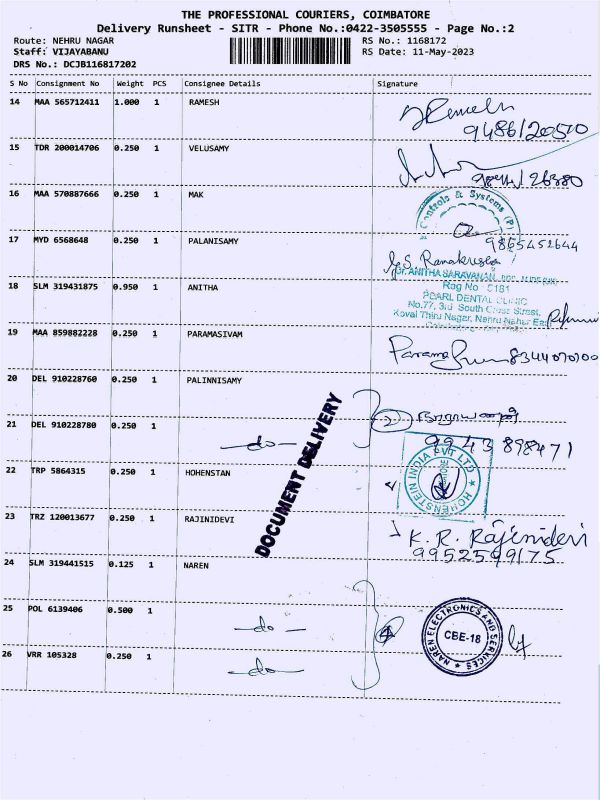 THE PROFESSIONAL COURIERS, COIMBATORE
Delivery Runsheet - SITR - Phone No.:0422-3505555 - Page No.:2
Route: NEHRU NAGAR RS No.: 1168172
Staff: VIJAYABANU RS Date: 11-May-2023
DRS No.: DCJB116817202
S No Consignment No Weight PCS Consignee Details Signature
14 MAA 565712411 1.000 1 RAMESH
15 TDR 200014706 0.250 1 VELUSAMY
16 MAA 570887666 0.250 1 MAK
Controls & Systems (P)
17 MYD 6568648 0.250 1 PALANISAMY 9865452644
G.S. Ramakrishna
Dr. ANITHA SARAVANAN
18 SLM 319431875 0.950 1 ANITHA Reg No : 5181
PEARL DENTAL CLINIC
No.77, 3rd South Cross Street,
Koval Thiru Nagar, Nehru Nagar East
19 MAA 859882228 0.250 1 PARAMASIVAM
8344070100
20 DEL 910228760 0.250 1 PALINNISAMY
2 நாராயணன்
21 DEL 910228780 0.250 1 -do-
9943 898471
DOCUMENT DELIVERY
22 TRP 5864315 0.250 1 HOHENSTAN HOHENSTEIN INDIA PVT LTD
23 TRZ 120013677 0.250 1 RAJINIDEVI K. R. Rajinidevi
9952599175
24 SLM 319441515 0.125 1 NAREN
25 POL 6139406 0.500 1 -do- NAREN ELECTRONICS AND SERVICES
CBE-18
26 VRR 105328 0.250 1 -do-